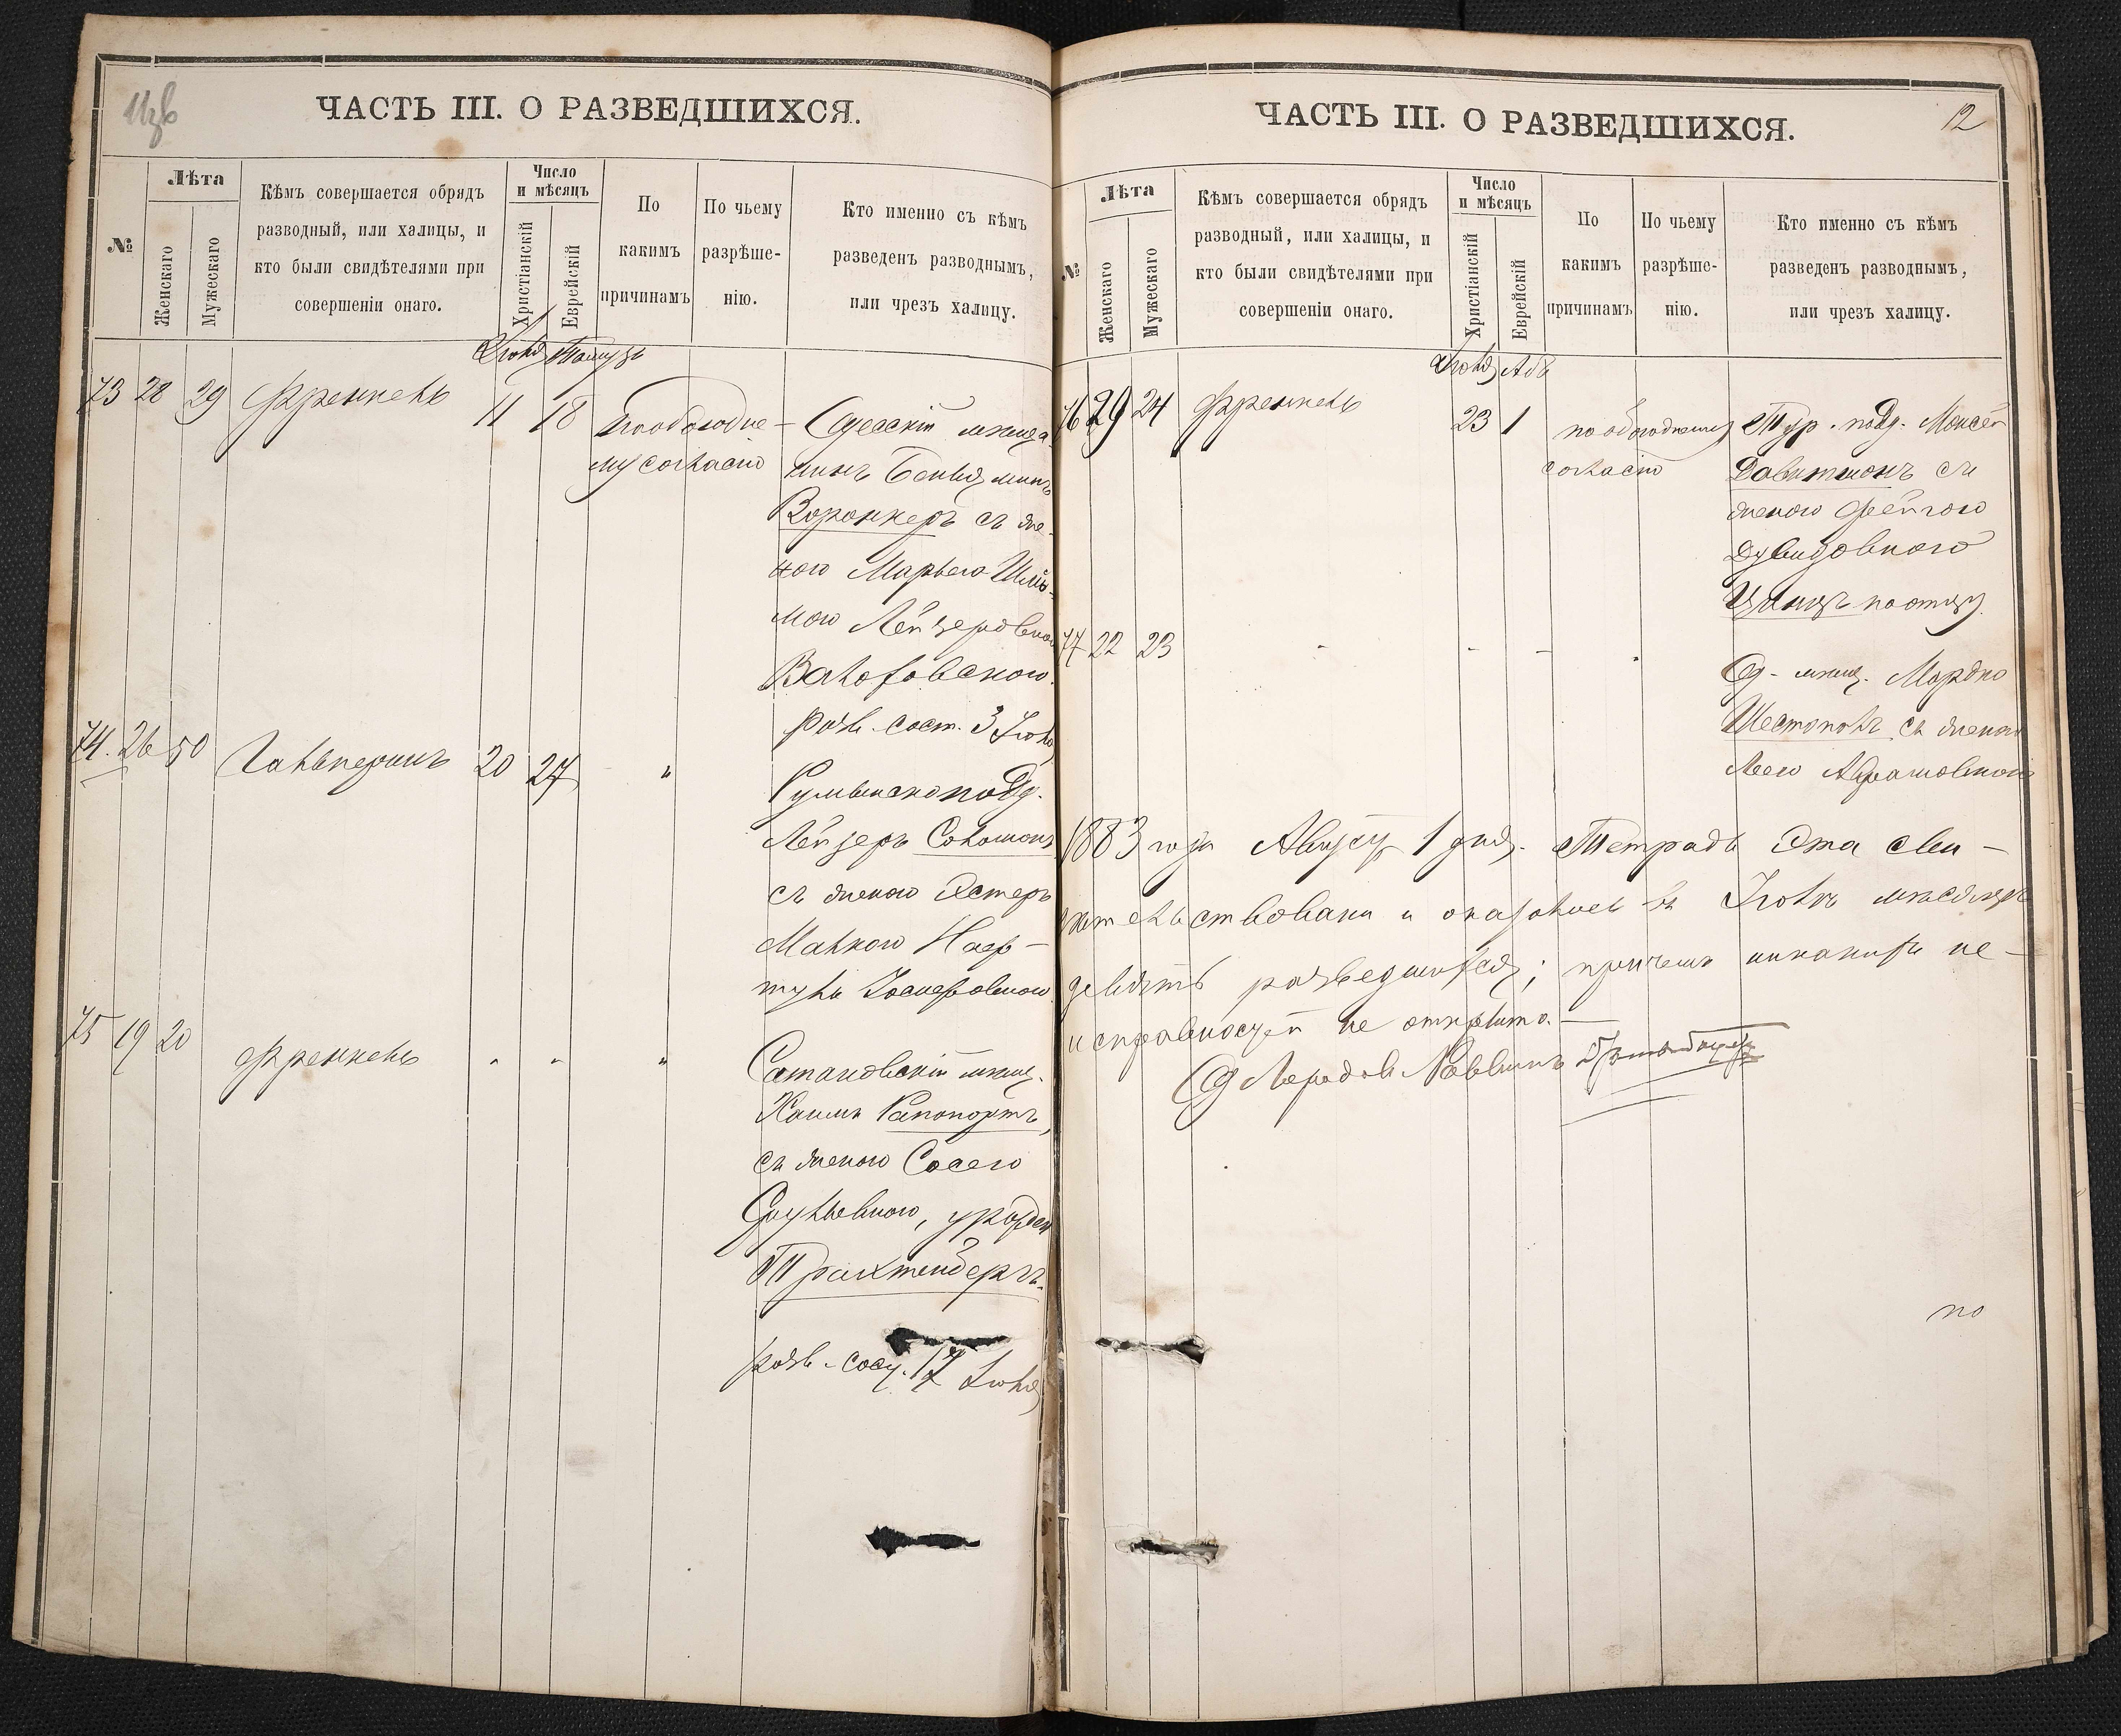 ЧАСТЬ III. О РАЗВЕДШИХСЯ.
№
Лѣта
Женскаго
Мужескаго
Кѣмъ совершается обрядъ
разводный, или халицы, и
кто были свидѣтелями при
совершеніи онаго.
Число
и мѣсяцъ
Христіанскій
Еврейскій
По
какимъ
причинамъ
По чьему
разрѣше-
нію.
Кто именно съ кѣмъ
разведенъ разводнымъ,
или чрезъ халицу.
Іюля Тамузъ
73 28 29 Френкель 11 18 по обоюдно-
му согласію
Одесскій мѣща
нинъ Беньяминъ
Воронкеръ съ же-
ною Марьею Шей-
Лейзеровною
разв. сост. 3 Іюля
74. 26 50 Гальперинъ 20 27 "
Румынско подд.
Лейзеръ Соломонъ
съ женою Эстеръ
Малкою
75 19 20 Френкель " " "
Сатановскій мѣщ.
Хаимъ Рапопортъ,
съ женою Сосею
Срульевною, урожден
Трахтенбергъ.
разв. сост. 17 Іюля
ЧАСТЬ III. О РАЗВЕДШИХСЯ.
12
№
Лѣта
Женскаго
Мужескаго
Кѣмъ совершается обрядъ
разводный, или халицы, и
кто были свидѣтелями при
совершеніи онаго.
Число
и мѣсяцъ
Христіанскій
Еврейскій
По
какимъ
причинамъ
По чьему
разрѣше-
нію.
Кто именно съ кѣмъ
разведенъ разводнымъ,
или чрезъ халицу.
Іюля Абъ
76 29 24 Френкель 23 1 по обоюдному
согласію
Тур. подд. Моисей
Давитшонъ съ
женою Фейгою
Дувидовною
по отцу
77 22 23 - - - -
Од. мѣщ. Мордко
Шестопалъ съ женою
Леею Абрамовною
1883 года Августа 1 дня. Тетрадь эта сви-
дѣтельствована и оказалось въ Іюлѣ мѣсяцѣ
девять разведшихся; причемъ никакихъ не-
исправностей не открыто. —
Од Городов Раввинъ
по